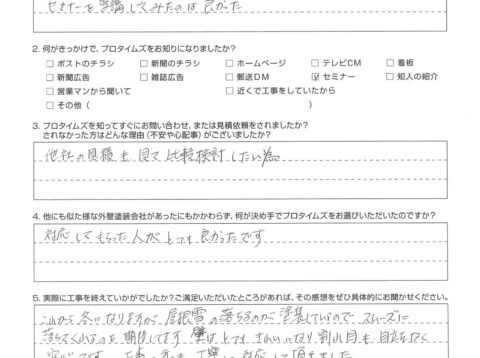 セミナーを受講してみたのは良かった
2. 何がきっかけで、プロタイムズをお知りになりましたか?
□ ポストのチラシ □ 新聞のチラシ □ ホームページ □ テレビCM □ 看板
□ 新聞広告 □ 雑誌広告 □ 郵送DM ☑ セミナー □ 知人の紹介
□ 営業マンから聞いて □ 近くで工事をしていたから
□ その他( )
3. プロタイムズを知ってすぐにお問い合わせ、または見積依頼をされましたか?
されなかった方はどんな理由(不安や心配事)がございましたか?
他社の見積も見て比較検討したい為
4. 他にも似た様な外壁塗装会社があったにもかかわらず、何が決め手でプロタイムズをお選びいただいたのですか?
対応してもらった人がとても良かったです
5. 実際に工事を終えていかがでしたか?ご満足いただいたところがあれば、その感想をぜひ具体的にお聞かせください。
これから冬になりますが、屋根雪の落ちるのが塗装しているのでスムーズに
落ちてくれるのを期待してます 壁はとてもきれいになり割れ目も目立たなく
安心です 工事の方も丁寧に対応して頂きました